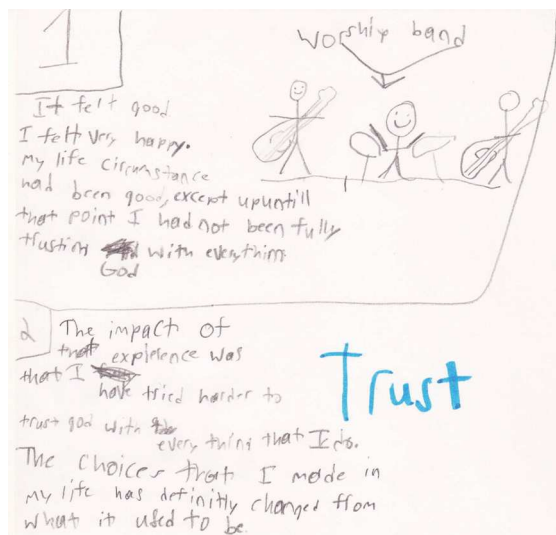 1
worship band
It felt good
I felt very happy.
my life circumstance
had been good, except upuntill
that point I had not been fully
trusting with everything
God
2
The impact of
that expierence was
that I
have tried harder to
trust god with
every thing that I do.
Trust
The choices that I made in
my life has definitly changed from
what it used to be.